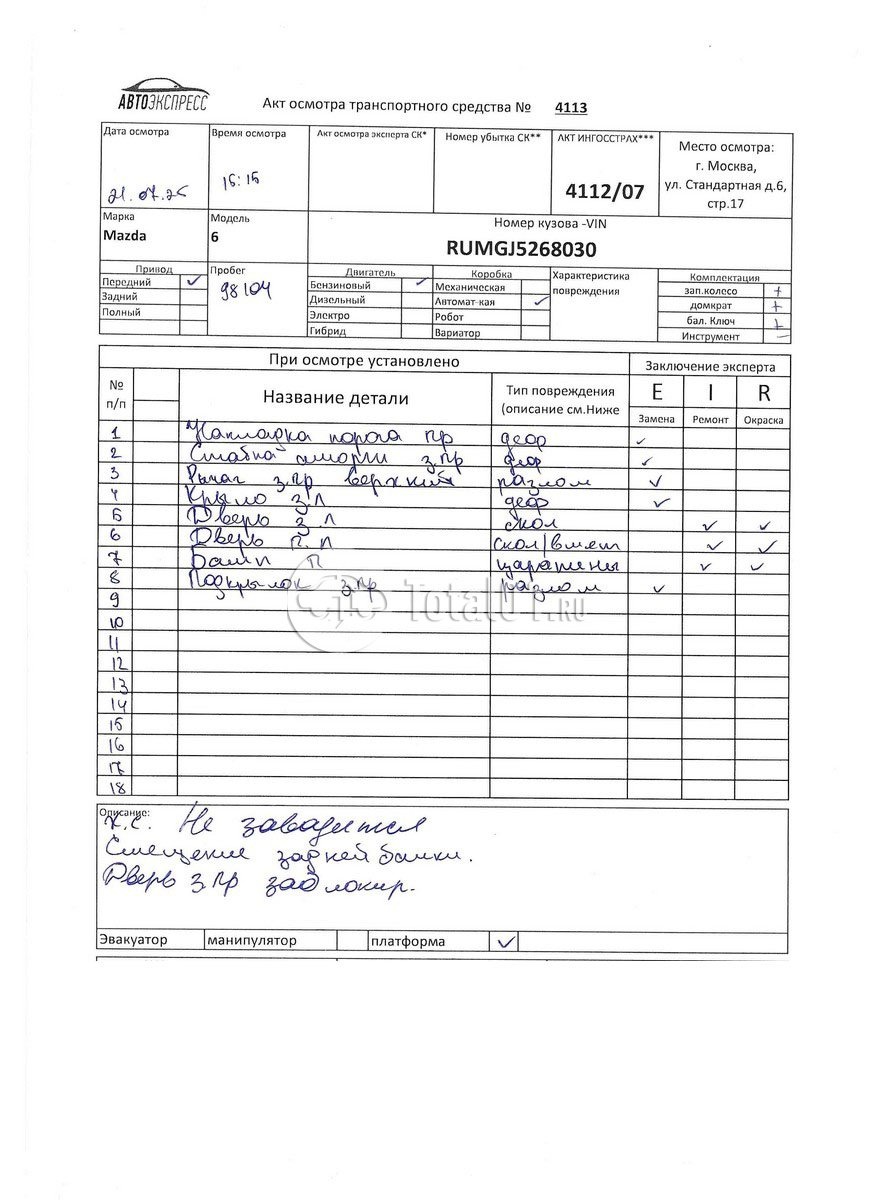 АВТОЭКСПРЕСС
Акт осмотра транспортного средства № 4113
Дата осмотра
Время осмотра
Акт осмотра эксперта СК*
Номер убытка СК**
АКТ ИНГОССТРАХ***
Место осмотра:
г. Москва,
ул. Стандартная д.6,
стр.17
21.07.25
15:15
4112/07
Марка
Mazda
Модель
6
Номер кузова -VIN
RUMGJ5268030
Привод
Передний ✓
Задний
Полный
Пробег
98104
Двигатель
Бензиновый ✓
Дизельный
Электро
Гибрид
Коробка
Механическая
Автомат-кая ✓
Робот
Вариатор
Характеристика
повреждения
Комплектация
зап.колесо +
домкрат +
бал. Ключ +
Инструмент —
При осмотре установлено
Заключение эксперта
№
п/п
Название детали
Тип повреждения
(описание см.Ниже
E I R
Замена Ремонт Окраска
1 Накладка порога пр деф ✓
2 з.пр деф ✓
3 Рычаг з.пр верхний разлом ✓
4 Крыло з л деф ✓
5 Дверь з л скол ✓ ✓
6 Дверь п. л скол/вмят ✓ ✓
7 Бамп П царапины ✓ ✓
8 Подкрылок з.пр разлом ✓
9
10
11
12
13
14
15
16
17
18
TotalUT.RU
Описание:
Х.с. Не заводится
Смещение задней балки.
Дверь з пр заблокир.
Эвакуатор манипулятор платформа ✓